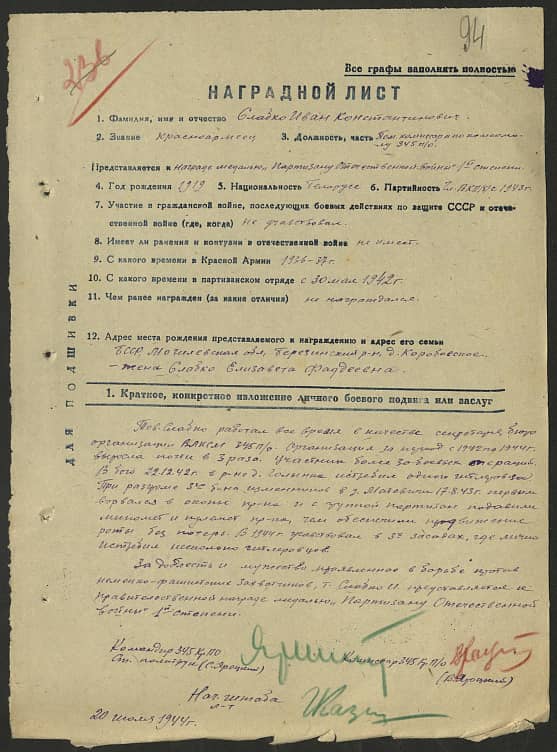 94
236
Все графы заполнять полностью
НАГРАДНОЙ ЛИСТ
1. Фамилия, имя и отчество Сладко Иван Константинович
2. Звание Красноармеец 3. Должность, часть Пом. комиссара по комсомо-
лу 345 п/о.
Представляется к награде медалью „Партизану Отечественной Войны" 1ой степени.
4. Год рождения 1919 5. Национальность Белорус 6. Партийность Чл. ВКП(б) с 1943 г.
7. Участие в гражданской войне, последующих боевых действиях по защите СССР и отече-
ственной войне (где, когда) не участвовал.
8. Имеет ли ранения и контузии в отечественной войне не имеет.
9. С какого времени в Красной Армии 1936-37 г.
10. С какого времени в партизанском отряде с 30 мая 1942 г.
11. Чем ранее награжден (за какие отличия) не награждался.
12. Адрес места рождения представляемого к награждению и адрес его семьи
БССР, Могилевская обл, Березинский р-н, д.
- жена Сладко Елизавета Фаддеевна.
ДЛЯ ПОДШИВКИ
1. Краткое, конкретное изложение личного боевого подвига или заслуг
Тов. Сладко работал все время в качестве секретаря бюро
организации ВЛКСМ 345 п/о. Организация за период с 1942 по 1944 г.
выросла почти в 3 раза. Участник более 30 боевых операций.
В бою 22.12.42 г. в р-не д. истребил одного гитлеровца.
При разгроме б-на изменников в д. 17.8.43 г. первым
ворвался в окопы пр-ка и с группой партизан подавили
миномет и пулемет пр-ка, чем обеспечили продвижение
роты без потерь. В 1944 г. участвовал в засадах, где лично
истребил несколько гитлеровцев.
За доблесть и мужество проявленное в борьбе против
немецко-фашистских захватчиков, т. Сладко И. представляется к
правительственной награде медалью „Партизану Отечественной
войны" 1ой степени.
Командир 345 п/о
Ст. политрук
Комиссар 345 п/о
Нач. штаба
л-т
20 июля 1944 г.